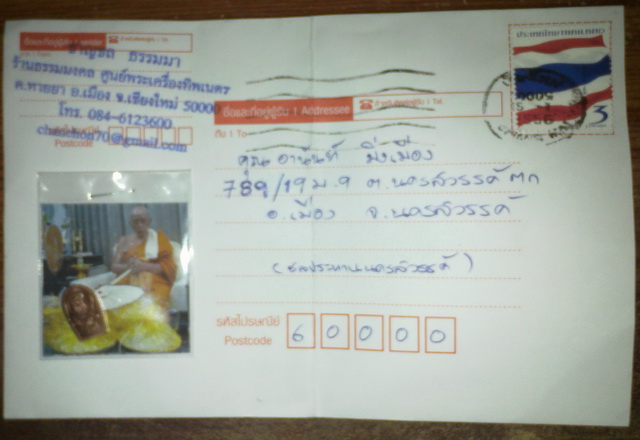 ชื่อและที่อยู่ผู้ส่ง
ธรรมมา
ร้านธรรมมงคล ศูนย์พระเครื่องทิพเนตร
ต.หายยา อ.เมือง จ.เชียงใหม่ 50000
โทร. 084-6123600
chanchon70@gmail.com
Postcode
ประเทศไทย THAILAND
3
ชื่อและที่อยู่ผู้รับ | Addressee
ถึง | To
คุณ อานันท์ มิ่งเมือง
789/19 ม.9 ต.นครสวรรค์ตก
อ.เมือง จ.นครสวรรค์
(ชลประทานนครสวรรค์)
รหัสไปรษณีย์
Postcode
60000